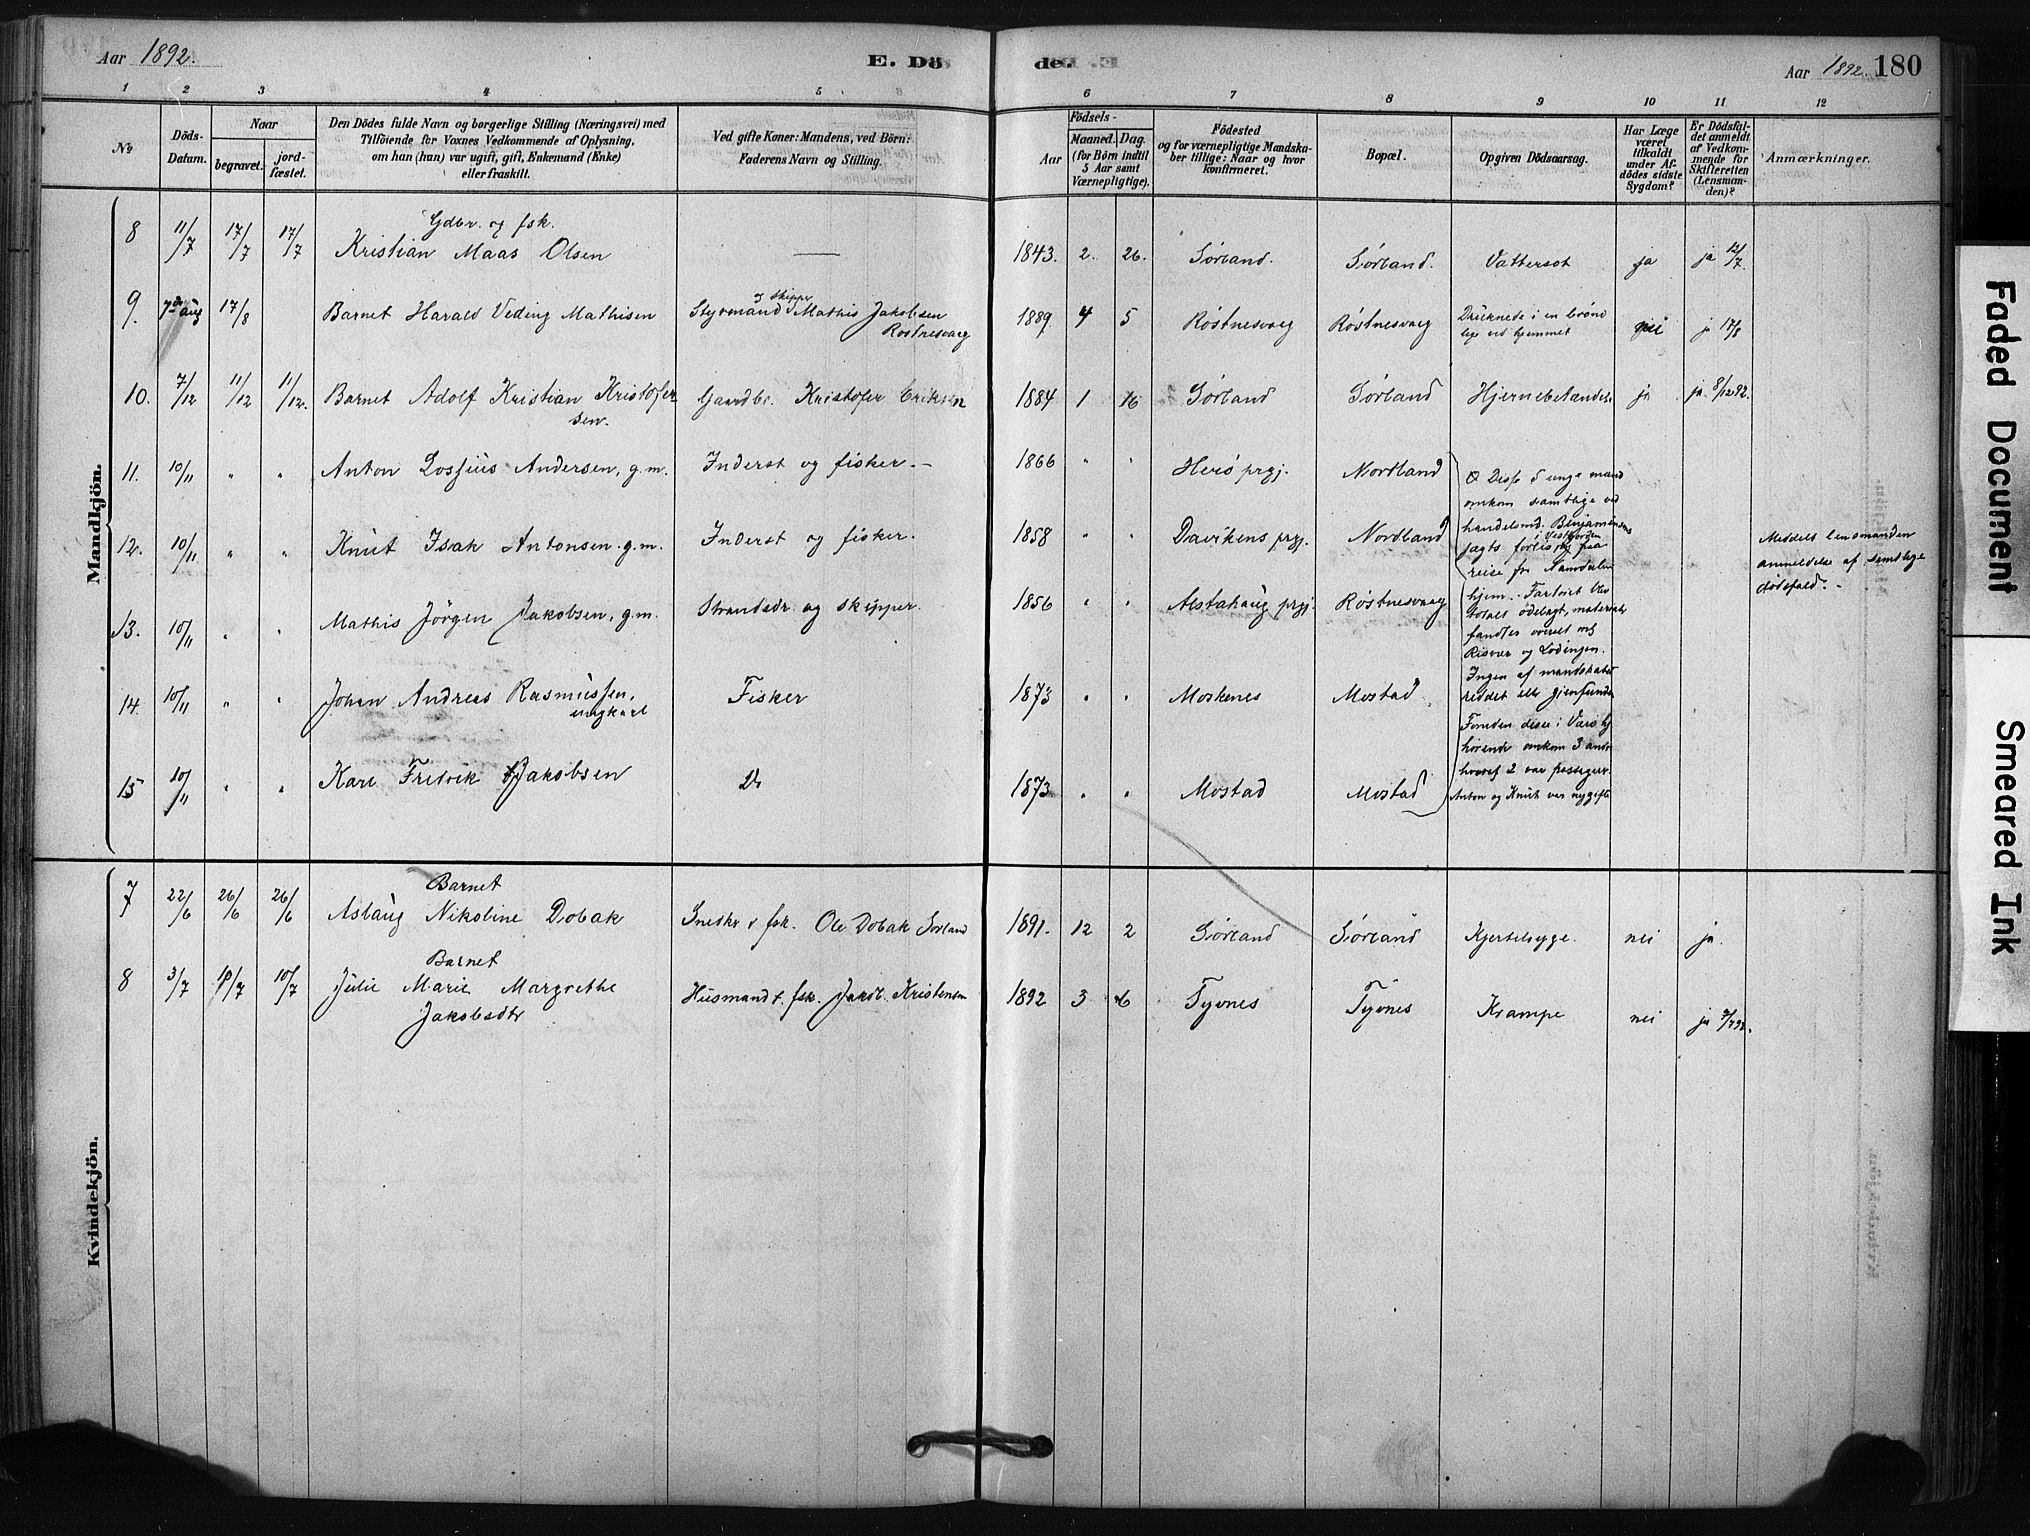 Aar 1892. E. Döde. Aar 1892. 180
1 2 3 4 5 6 7 8 9 10 11 12
No
Döds-Datum.
Naar
begravet.
jord-fæstet.
Den Dödes fulde Navn og borgerlige Stilling (Næringsvei) med
Tilföiende for Voxnes Vedkommende af Oplysning,
om han (hun) var ugift, gift, Enkemand (Enke)
eller fraskilt.
Ved gifte Koner: Mandens, ved Börn:
Faderens Navn og Stilling.
Födsels-
Aar
Maaned. Dag.
(for Börn indtil
5 Aar samt
Værnepligtige).
Födested
og for værnepligtige Mandska-
ber tillige: Naar og hvor
konfirmeret.
Bopæl.
Opgiven Dödsaarsag.
Har Læge
været
tilkaldt
under Af-
dödes sidste
Sygdom?
Er Dödsfal-
det anmeldt
af Vedkom-
mende for
Skifteretten
(Lensman-
den)?
Anmærkninger.
Mandkjön.
Gdbr. og fsk.
8 11/7 17/7 17/7 Kristian Maas Olsen — 1843. 2. 26. Sørland. Sørland. Vattersot ja ja 12/7.
og skipper
9. 7de aug 17/8 Barnet Harald Veding Mathisen Styrmand Mathis Jakobsen 1889 4 5 Røstnesvaag Røstnesvaag Druknede i en brønd nei ja 17/8
Røstnesvaag
ved hjemmet
10. 7/12 11/12 11/12. Barnet Adolf Kristian Kristofer- Gaardbr. Kristofer Eriksen 1884 1 16 Sørland Sørland Hjernebetændelse ja ja 8/12 92.
sen.
11. 10/11 " " Anton Lossius Andersen, g.m. Inderst og fisker. – 1866 " " Herö prgj. Nordland
12. 10/11 " " Knut Isak Antonsen. g.m. Inderst og fisker. 1858 " " Davikens prgj. Nordland
13. 10/11 " " Mathis Jörgen Jakobsen, g.m. Strandsdr og skipper. 1856 " " Alstahaug prgj. Røstnesvaag
14. 10/11 " " Johan Andreas Rasmussen, Fisker 1873 " " Moskenes Mostad
ungkarl
15 10/11 " " Karl Fredrik Jakobsen Do 1873 " " Mostad Mostad
Disse 5 unge mænd
omkom samtlige ved
handelsmd. Benjaminsens
i Vestfjorden
jagts forlis paa
reise fra Namdalen
hjem. Fartøiet blev
totalt ödelagt, materialer
fandtes overalt mel.
Risvær og Lödingen.
Ingen af mandskabet
reddet eller gjenfunden
Foruden disse i Værö hj.
hörende omkom 3 andre
hvoraf 2 var passagerer.
Anton og Knut var nygifte
Meddelt lensmanden
anmeldelse af samtlige
dödsfald. –
Kvindekjön.
Barnet
7 22/6 26/6 26/6 Aslaug Nikoline Dobak Snedker & fsk. Ole Dobak Sørland 1891. 12 2 Sørland Sørland Kjertelsyge. nei ja.
Barnet
8 3/7 10/7 10/7 Julie Marie Margrethe Husmand & fsk. Jakob Kristensen 1892 3 6 Tyvnes Tyvnes Krampe nei ja 7/7 92.
Jakobsdtr
Faded Document
Smeared Ink